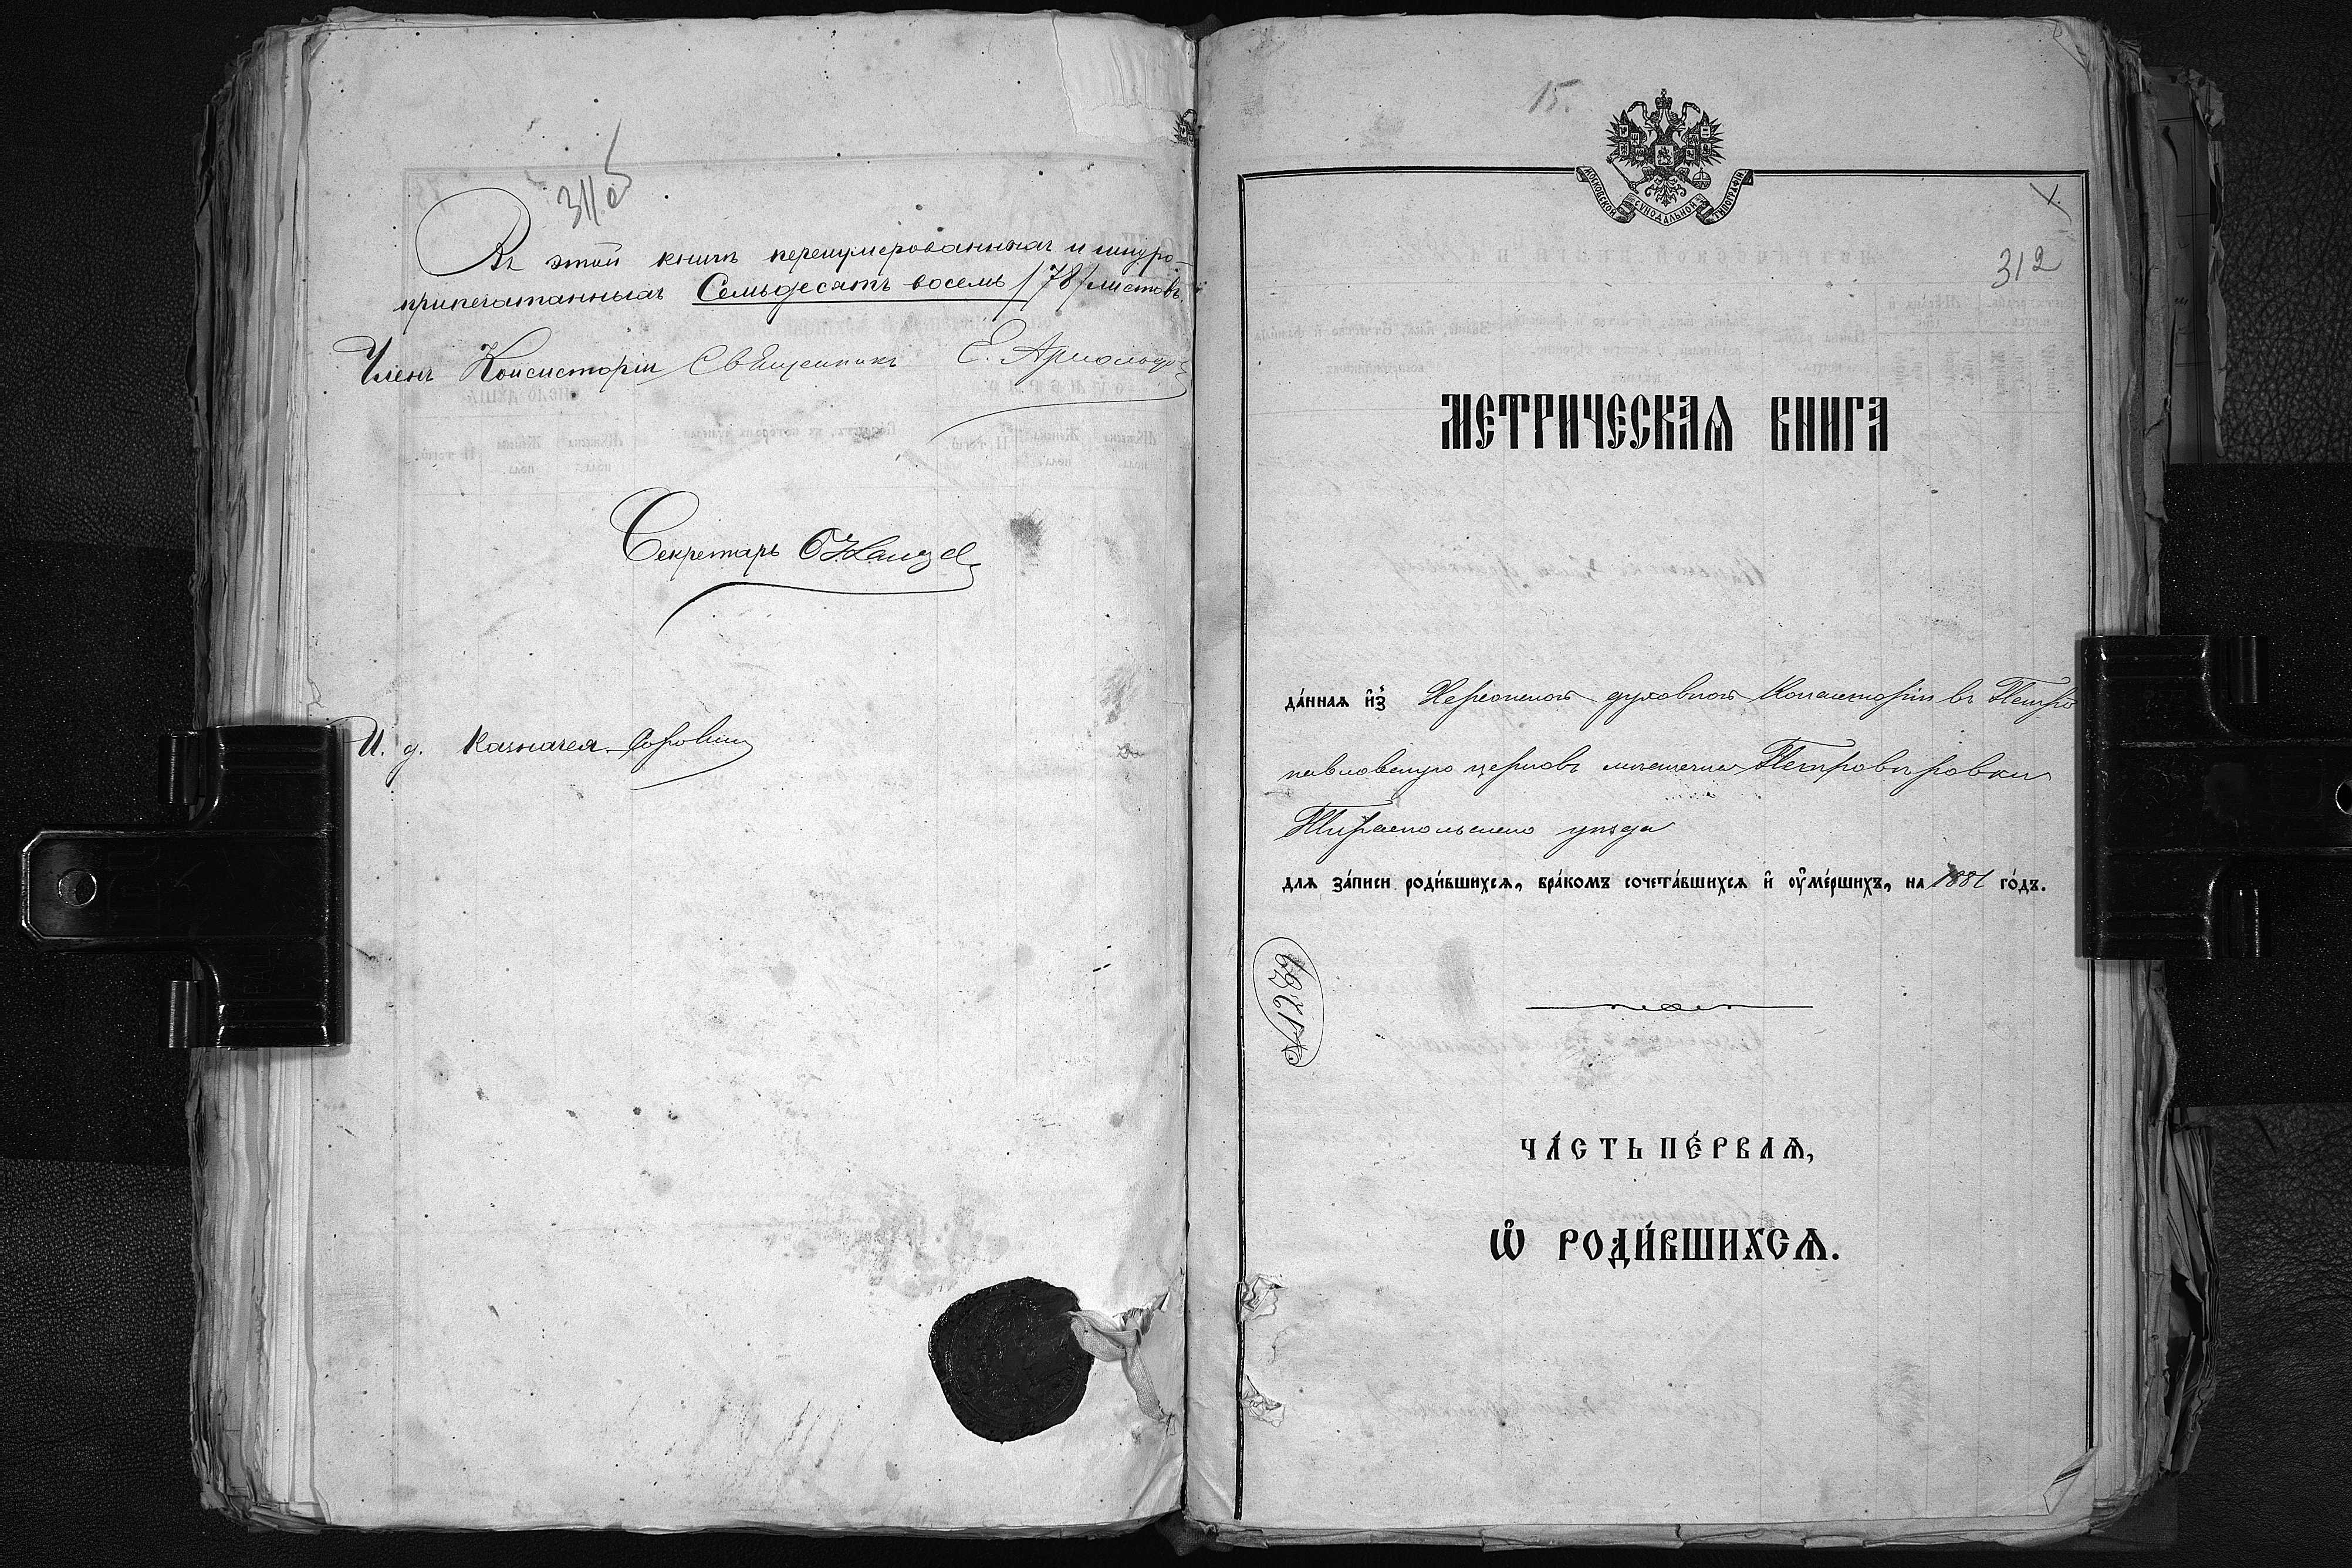 311 об
Въ этой книгѣ перенумерованныхъ и шнуро-
припечатанныхъ Семьдесятъ восемь /78/ листовъ.
Членъ Консисторіи Священникъ Е. Арнольдо
Секретарь
И. д. Казначея
15.
МОСКОВСКОЙ СѴНОДАЛЬНОЙ ТИПОГРАФІИ
312
МЕТРИЧЕСКАѦ КНИГА
да́ннаѧ и҆з̾ Херсонской духовной Консисторіи въ Петро
павловскую церковь мѣстечка Петровѣровки
Тираспольскаго уѣзда
длѧ за́писи роди́вшихсѧ, бра́комъ сочета́вшихсѧ и҆ ᲂу҆ме́ршихъ, на 1881 го́дъ.
№1269
ЧА́СТЬ ПЕ́РВАѦ,
Ѽ РОДИ́ВШИХСѦ.